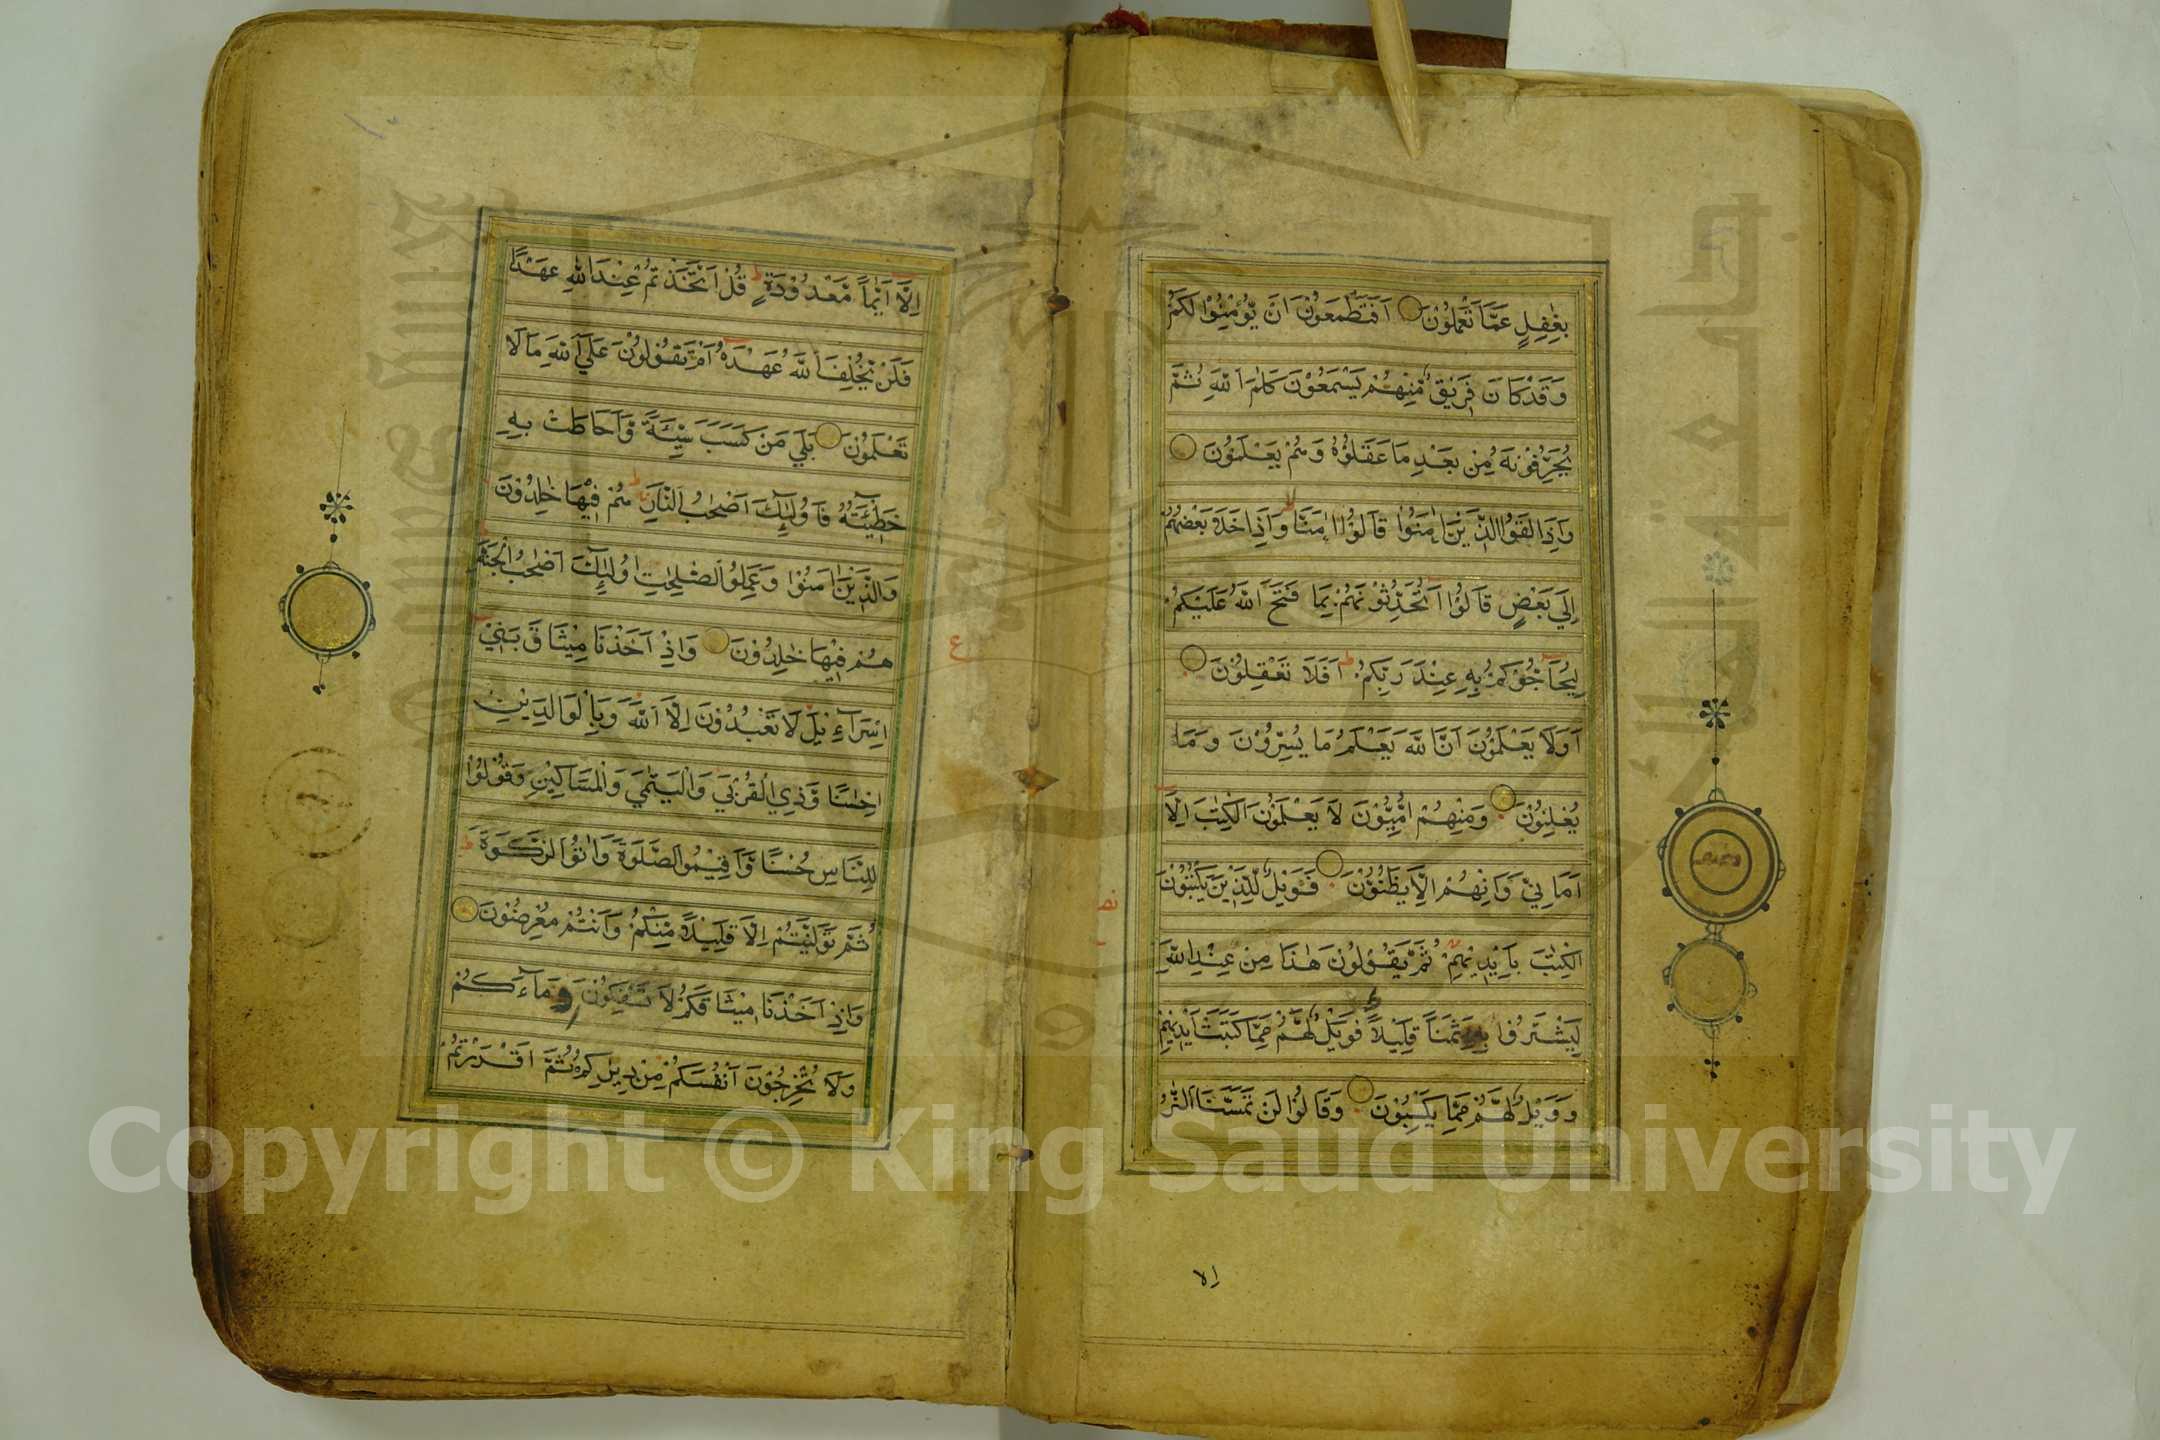 بِغٰفِلٍ عَمَّا تَعْمَلُوْنَ اَفَتَطْمَعُوْنَ اَنْ يُّؤْمِنُوْا لَكُمْ
وَقَدْ كَانَ فَرِيْقٌ مِّنْهُمْ يَسْمَعُوْنَ كَلٰمَ اللّٰهِ ثُمَّ
يُحَرِّفُوْنَهٗ مِنْ بَعْدِ مَا عَقَلُوْهُ وَهُمْ يَعْلَمُوْنَ
وَاِذَا لَقُوا الَّذِيْنَ اٰمَنُوْا قَالُوْا اٰمَنَّا وَاِذَا خَلَا بَعْضُهُمْ
اِلٰي بَعْضٍ قَالُوْا اَتُحَدِّثُوْنَهُمْ بِمَا فَتَحَ اللّٰهُ عَلَيْكُمْ
لِيُحَاجُّوْكُمْ بِهٖ عِنْدَ رَبِّكُمْ اَفَلَا تَعْقِلُوْنَ
اَوَلَا يَعْلَمُوْنَ اَنَّ اللّٰهَ يَعْلَمُ مَا يُسِرُّوْنَ وَمَا
يُعْلِنُوْنَ وَمِنْهُمْ اُمِّيُّوْنَ لَا يَعْلَمُوْنَ الْكِتٰبَ اِلَّا
اَمَانِيَّ وَاِنْهُمْ اِلَّا يَظُنُّوْنَ فَوَيْلٌ لِّلَّذِيْنَ يَكْتُبُوْنَ
الْكِتٰبَ بِاَيْدِيْهِمْ ثُمَّ يَقُوْلُوْنَ هٰذَا مِنْ عِنْدِ اللّٰهِ
لِيَشْتَرُوْا بِهٖ ثَمَنًا قَلِيْلًا فَوَيْلٌ لَّهُمْ مِّمَّا كَتَبَتْ اَيْدِيْهِمْ
وَوَيْلٌ لَّهُمْ مِّمَّا يَكْسِبُوْنَ وَقَالُوْا لَنْ تَمَسَّنَا النَّارُ
الا
اِلَّا اَيَّامًا مَّعْدُوْدَةً قُلْ اَتَّخَذْتُمْ عِنْدَ اللّٰهِ عَهْدًا
فَلَنْ يُّخْلِفَ اللّٰهُ عَهْدَهٗ اَمْ تَقُوْلُوْنَ عَلَي اللّٰهِ مَا لَا
تَعْلَمُوْنَ بَلٰي مَنْ كَسَبَ سَيِّئَةً وَّاَحَاطَتْ بِهٖ
خَطِيْٓئَتُهٗ فَاُولٰٓئِكَ اَصْحٰبُ النَّارِ هُمْ فِيْهَا خٰلِدُوْنَ
وَالَّذِيْنَ اٰمَنُوْا وَعَمِلُوا الصّٰلِحٰتِ اُولٰٓئِكَ اَصْحٰبُ الْجَنَّةِ
هُمْ فِيْهَا خٰلِدُوْنَ وَاِذْ اَخَذْنَا مِيْثَاقَ بَنِيْ
اِسْرَآءِيْلَ لَا تَعْبُدُوْنَ اِلَّا اللّٰهَ وَبِالْوَالِدَيْنِ
اِحْسَانًا وَّذِي الْقُرْبٰي وَالْيَتٰمٰي وَالْمَسَاكِيْنِ وَقُوْلُوْا
لِلنَّاسِ حُسْنًا وَّاَقِيْمُوا الصَّلٰوةَ وَاٰتُوا الزَّكٰوةَ
ثُمَّ تَوَلَّيْتُمْ اِلَّا قَلِيْلًا مِّنْكُمْ وَاَنْتُمْ مُّعْرِضُوْنَ
وَاِذْ اَخَذْنَا مِيْثَاقَكُمْ لَا تَسْفِكُوْنَ دِمَآءَكُمْ
وَلَا تُخْرِجُوْنَ اَنْفُسَكُمْ مِّنْ دِيَارِكُمْ ثُمَّ اَقْرَرْتُمْ
ع
Copyright © King Saud University
1957